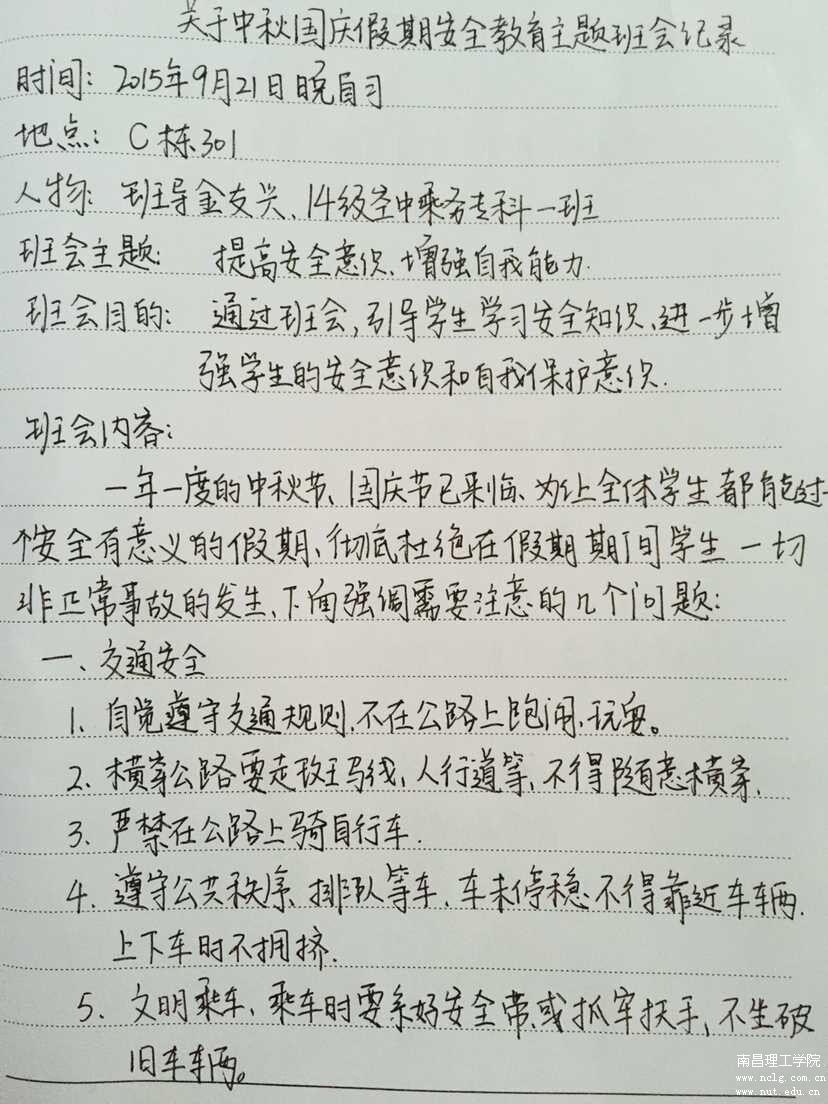 关于中秋国庆假期安全教育主题班会纪录
时间: 2015年9月21日晚自习
地点: C栋301
人物: 班导金友兴、14级空中乘务专科一班
班会主题: 提高安全意识、增强自我能力.
班会目的: 通过班会,引导学生学习安全知识、进一步增
强学生的安全意识和自我保护意识.
班会内容:
一年一度的中秋节、国庆节已来临、为让全体学生都能过一
个安全有意义的假期、彻底杜绝在假期期间学生一切
非正常事故的发生、下面强调需要注意的几个问题:
一、交通安全
1. 自觉遵守交通规则、不在公路上跑闹、玩耍。
2. 横穿公路要走斑马线,人行道等,不得随意横穿.
3. 严禁在公路上骑自行车.
4. 遵守公共秩序、排队等车、车未停稳不得靠近车辆.
上下车时不拥挤.
5. 文明乘车、乘车时要系好安全带或抓牢扶手、不坐破
旧车辆。
南昌理工学院
www.nclg.com.cn
www.nut.edu.cn